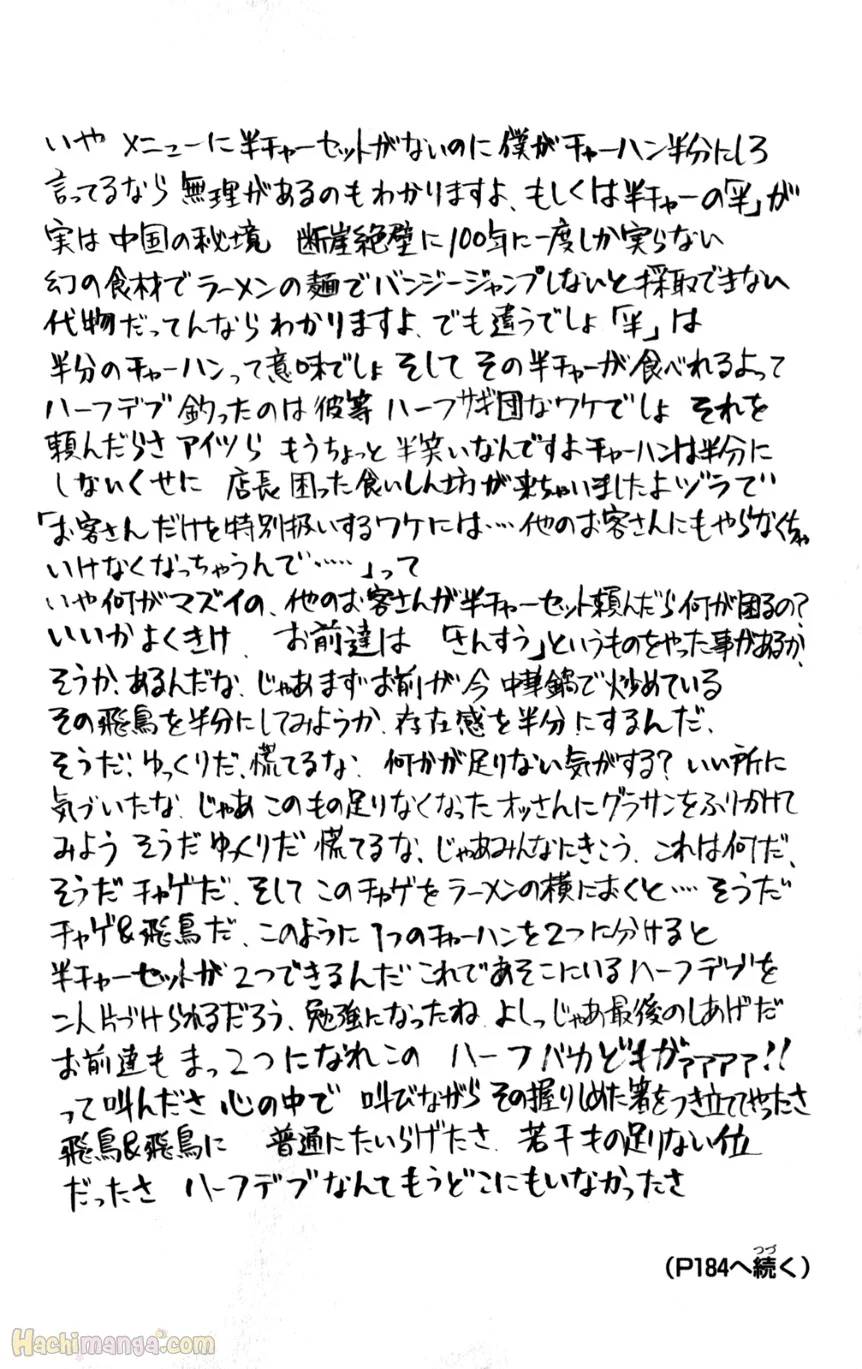 いや メニューに半チャーセットがないのに僕がチャーハン半分にしろ
言ってるなら無理があるのもわかりますよ、もしくは半チャーの「半」が
実は中国の秘境 断崖絶壁に100年に一度しか実らない
幻の食材でラーメンの麺でバンジージャンプしないと採取できない
代物だってんならわかりますよ、でも違うでしょ「半」は
半分のチャーハンって意味でしょ そして その半チャーが食べれるよって
ハーフデブ釣ったのは彼等ハーフサギ団なワケでしょ それを
頼んだらさ アイツら もうちょっと半笑いなんですよチャーハンは半分に
しないくせに 店長困った食いしん坊が来ちゃいましたよヅラで
「お客さんだけを特別扱いするワケには…他のお客さんにもやらなくちゃ
いけなくなっちゃうんで……」って
いや何がマズイの、他のお客さんが半チャーセット頼んだら何が困るの?
いいかよくきけ、お前達は「さんすう」というものをやった事があるか、
そうか、あるんだな、じゃあまずお前が今 中華鍋で炒めている
その飛鳥を半分にしてみようか、存在感を半分にするんだ、
そうだ、ゆっくりだ、慌てるな、何かが足りない気がする? いい所に
気づいたな、じゃあこのもの足りなくなったオッさんにグラサンをふりかけて
みよう そうだゆっくりだ 慌てるな、じゃあみんなにきこう、これは何だ、
そうだ チャゲだ、そしてこのチャゲをラーメンの横におくと…そうだ
チャゲ&飛鳥だ、このように1つのチャーハンを2つに分けると
半チャーセットが2つできるんだこれであそこにいるハーフデブを
二人片づけられるだろう、勉強になったね、よしっじゃあ最後のしあげだ
お前達もまっ2つになれこの ハーフバカどもがァァァァ!!
って叫んださ 心の中で 叫びながらその握りしめた箸をつき立ててやったさ
飛鳥&飛鳥に 普通にたいらげたさ、若干もの足りない位
だったさ ハーフデブなんてもうどこにもいなかったさ
(P184へ続く)
つづ
Hachimanga.com